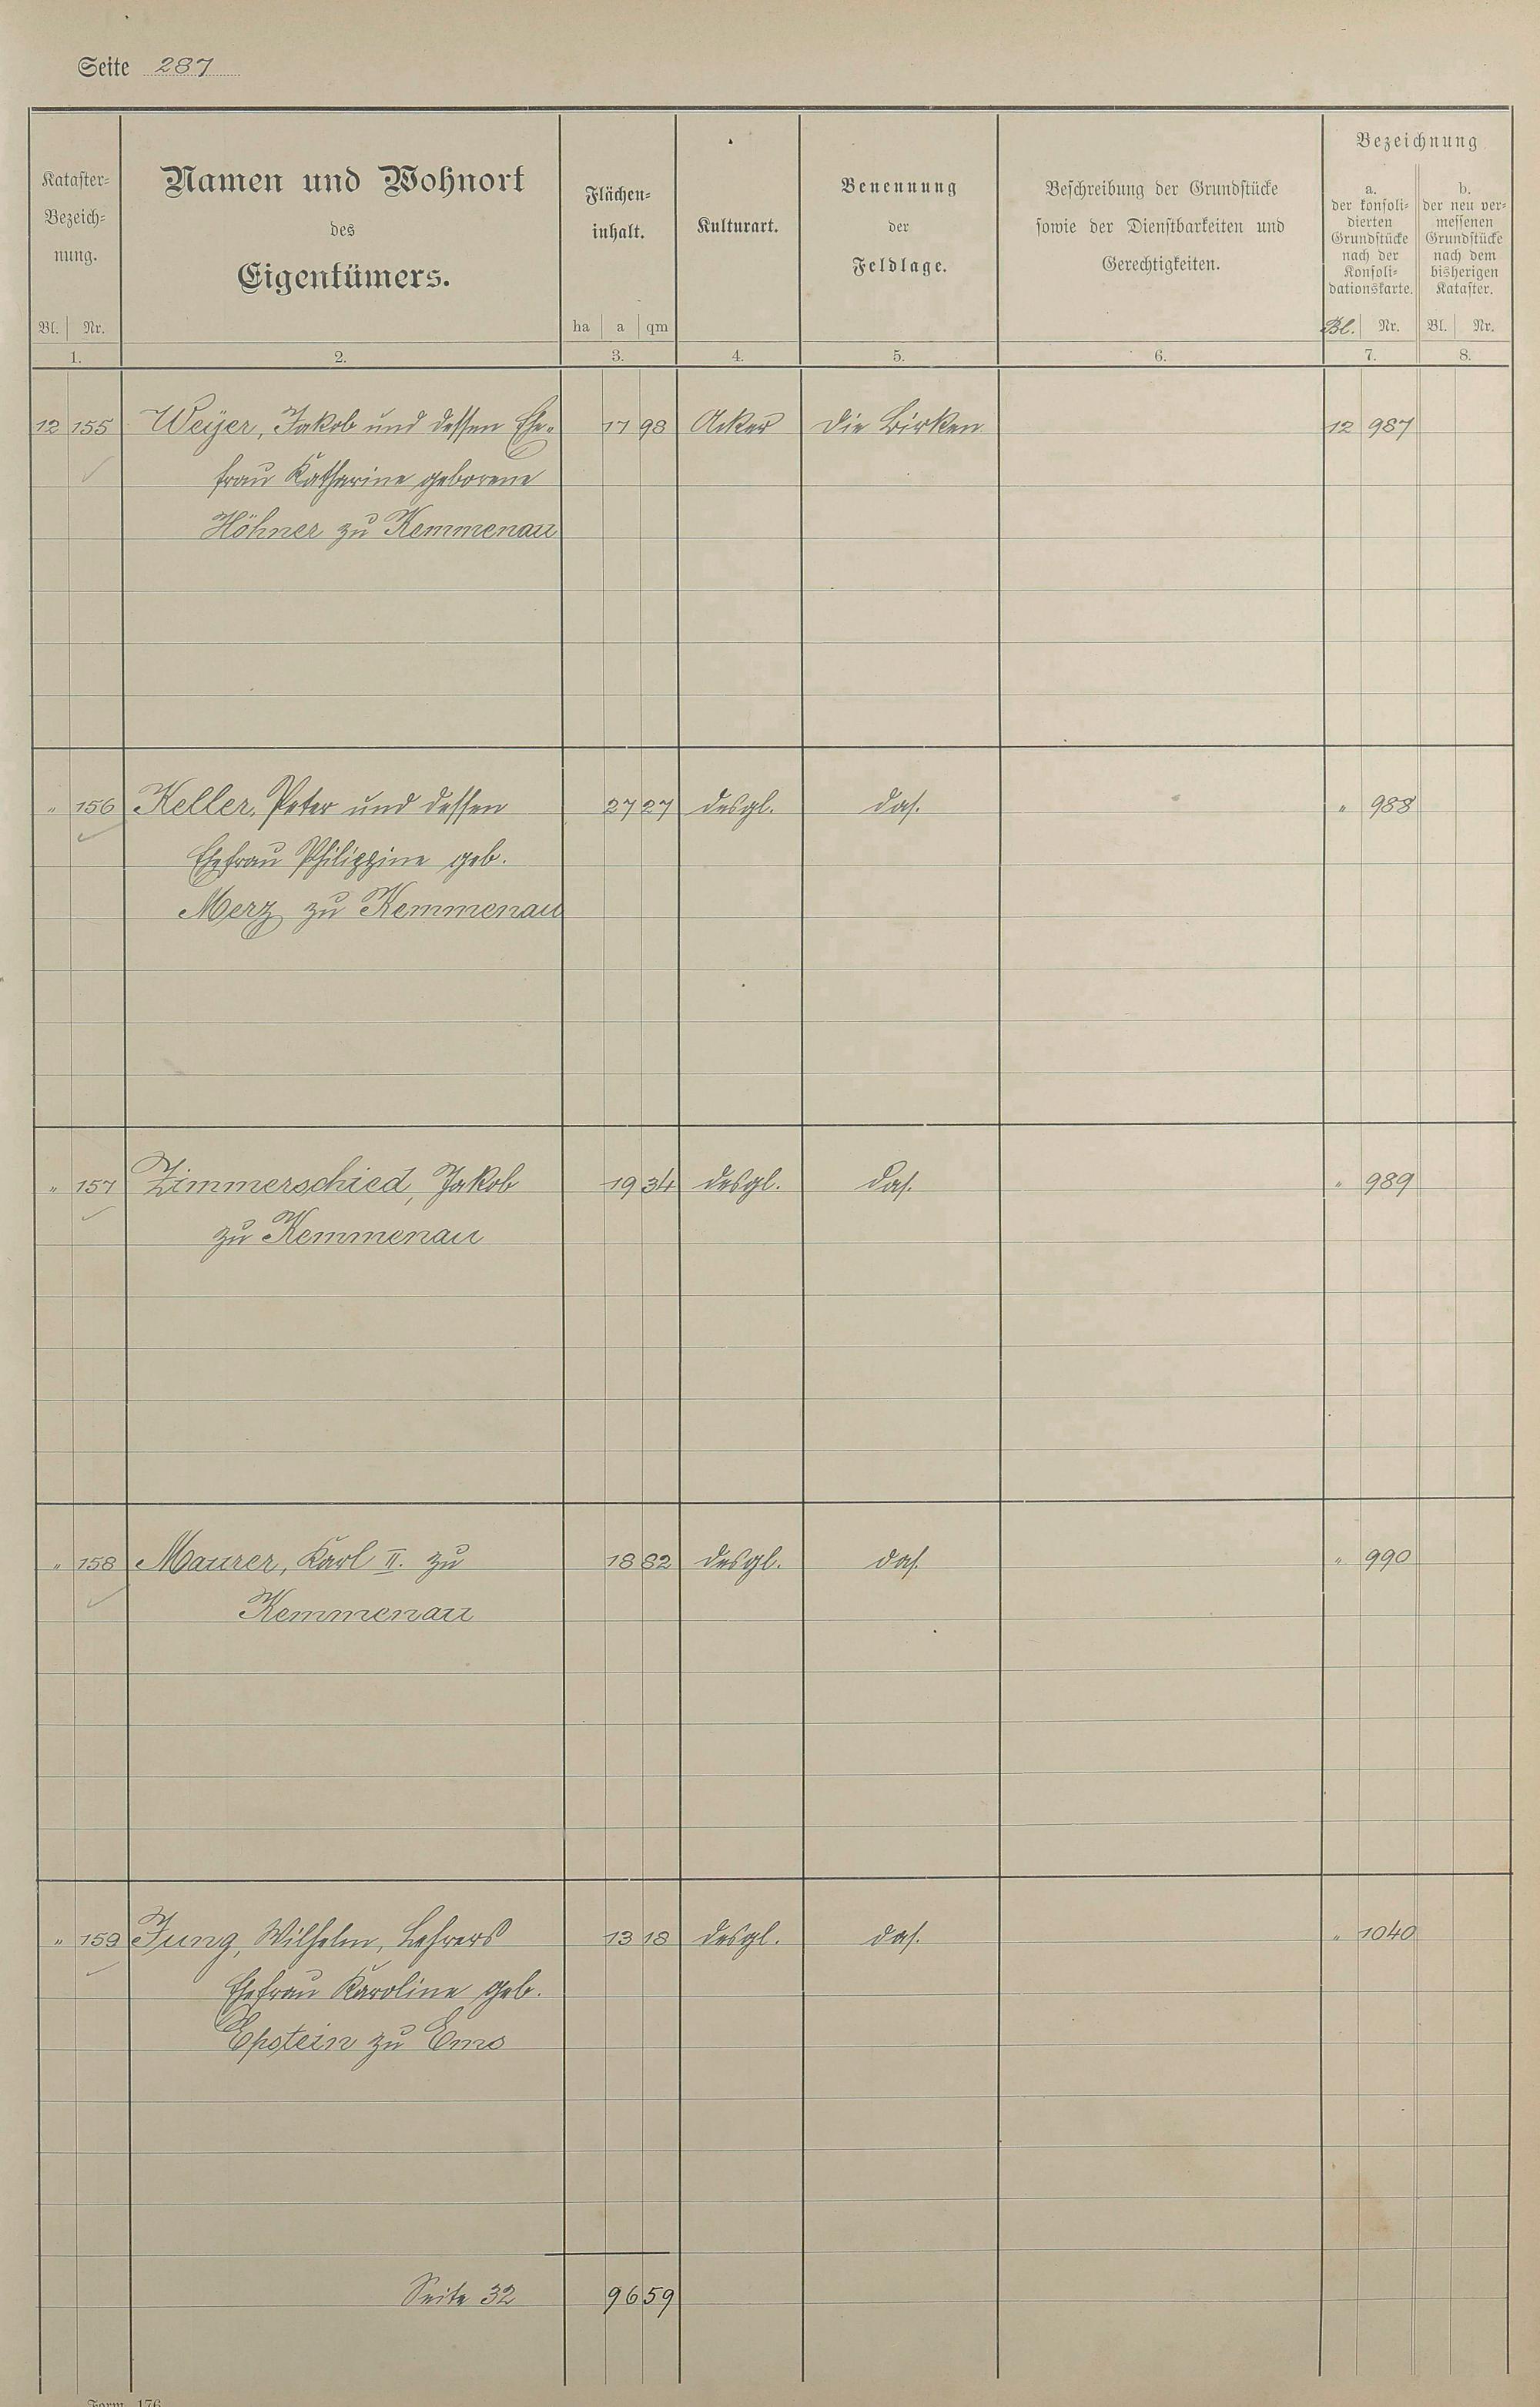 Seite 287
Kataster-
Bezeich-
nung.
Bl. Nr.
1.
Namen und Wohnort
des
Eigentümers.
2.
Flächen-
inhalt.
ha a qm
3.
Kulturart.
4.
Benennung
der
Feldlage.
5.
Beschreibung der Grundstücke
sowie der Dienstbarkeiten und
Gerechtigkeiten.
6.
Bezeichnung
a.
der konsoli-
dierten
Grundstücke
nach der
Konsoli-
dationskarte.
Bl. Nr.
7.
b.
der neu ver-
messenen
Grundstücke
nach dem
bisherigen
Kataster.
Bl. Nr.
8.
12 155 Weijer, Jakob und dessen Ehe- 17 98 Acker Die Birken 12 987
frau Katharine geborene
Höhner zu Kemmenau
" 156 Keller, Peter und dessen 27 27 desgl. das. " 988
Ehefrau Philippine geb.
Merz zu Kemmenau
" 157 Zimmerschied, Jakob 19 34 desgl. das. " 989
zu Kemmenau
" 158 Maurer, Karl II. zu 18 82 desgl. das. " 990
Kemmenau
" 159 Jung, Wilhelm, Lehrers 13 18 desgl. das. " 1040
Ehefrau Karoline geb.
Epstein zu Ems
Seite 32 96 59
Form. 176